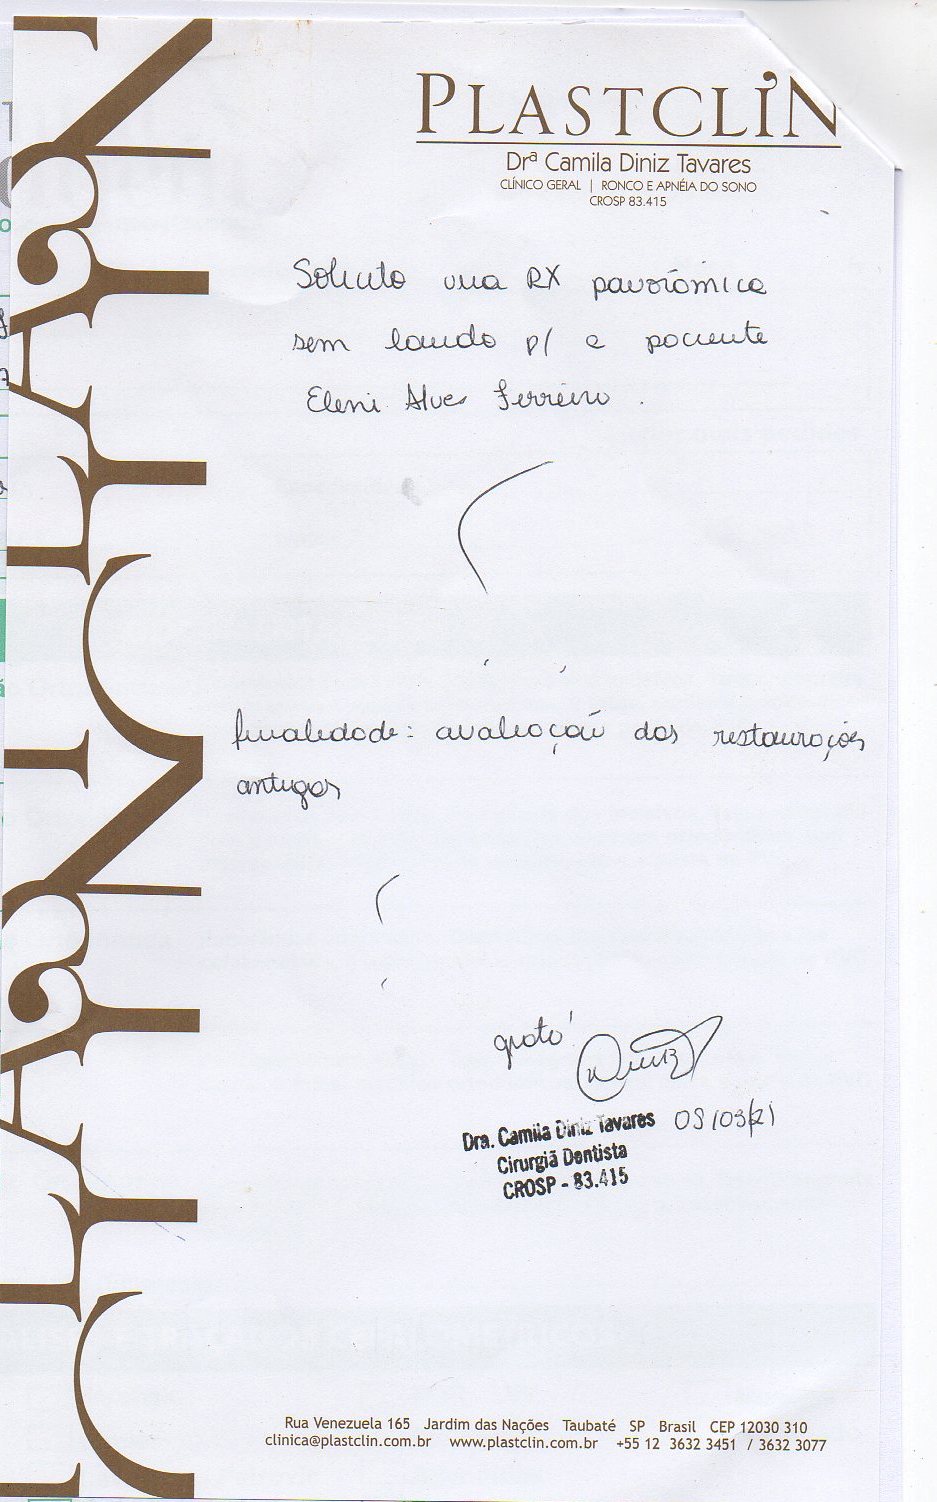 PLASTCLIN
Drª Camila Diniz Tavares
CLÍNICO GERAL | RONCO E APNÉIA DO SONO
CROSP 83.415
Solicito uma RX panorâmica
sem laudo p/ a paciente
Eleni Alves Ferreira.
finalidade: avaliação das restaurações
antigas
grata
Dra. Camila Diniz Tavares 09/03/21
Cirurgiã Dentista
CROSP - 83.415
Rua Venezuela 165 Jardim das Nações Taubaté SP Brasil CEP 12030 310
clinica@plastclin.com.br www.plastclin.com.br +55 12 3632 3451 / 3632 3077